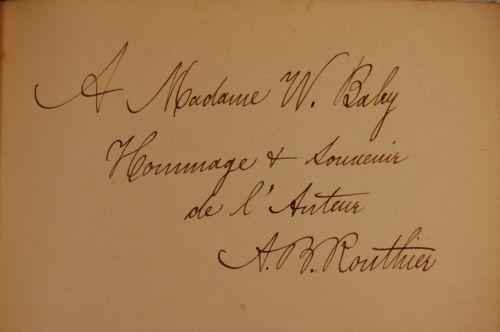 A Madame W. Baby
Hommage & Souvenir
de l'Auteur
A.B. Routhier